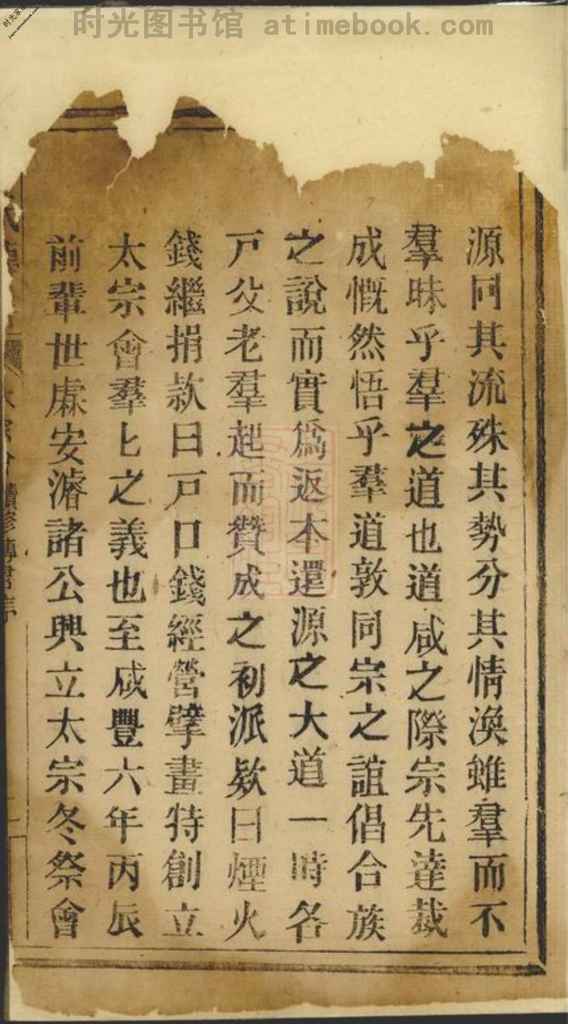 时光图书馆 atimebook.com
源同其流殊其勢分其情渙雖羣而不
羣昧乎羣之道也道咸之際宗先達裁
成慨然悟乎羣道敦同宗之誼倡合族
之說而實爲返本還源之大道一時各
戸父老羣起而贊成之初派欵曰煙火
錢繼捐款曰戸口錢經營擘畫特創立
太宗會羣匕之義也至咸豐六年丙辰
前輩世㢖安濬諸公興立太宗冬祭會